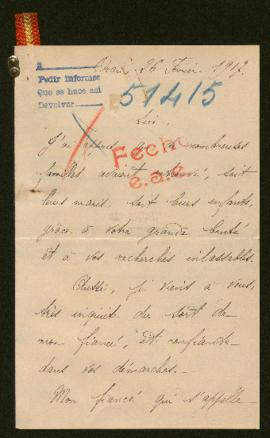 26 Février 1917
A
Pedir informes
Que se hace así
Devolver
51415
Sire.
Fecho
J'ai appris que de nombreuses
familles avaient retrouvé, soit
leurs maris, soit leurs enfants,
grâce à votre grande bonté
et à vos recherches inlassables.
Aussi, je viens à vous,
très inquiète du sort de
mon fiancé, et confiante
dans vos démarches.
Mon fiancé qui s'appelle